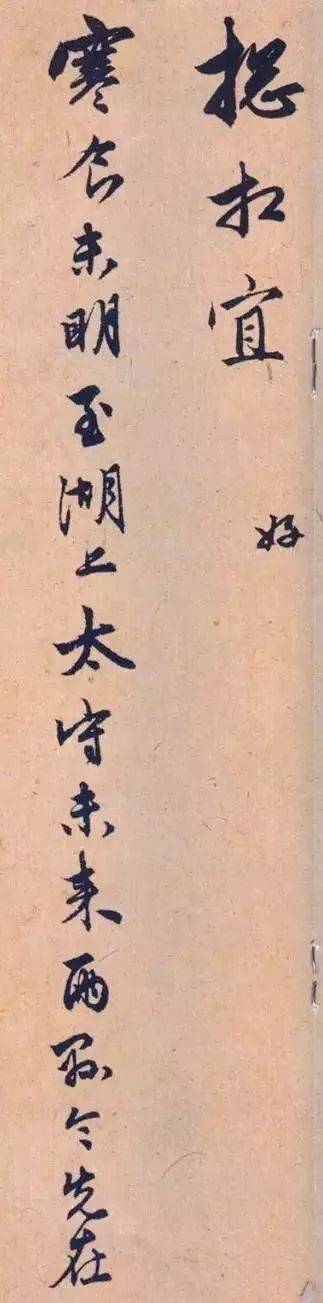 揔相宜
好
寒食未明至湖上太守未来兩縣令先在